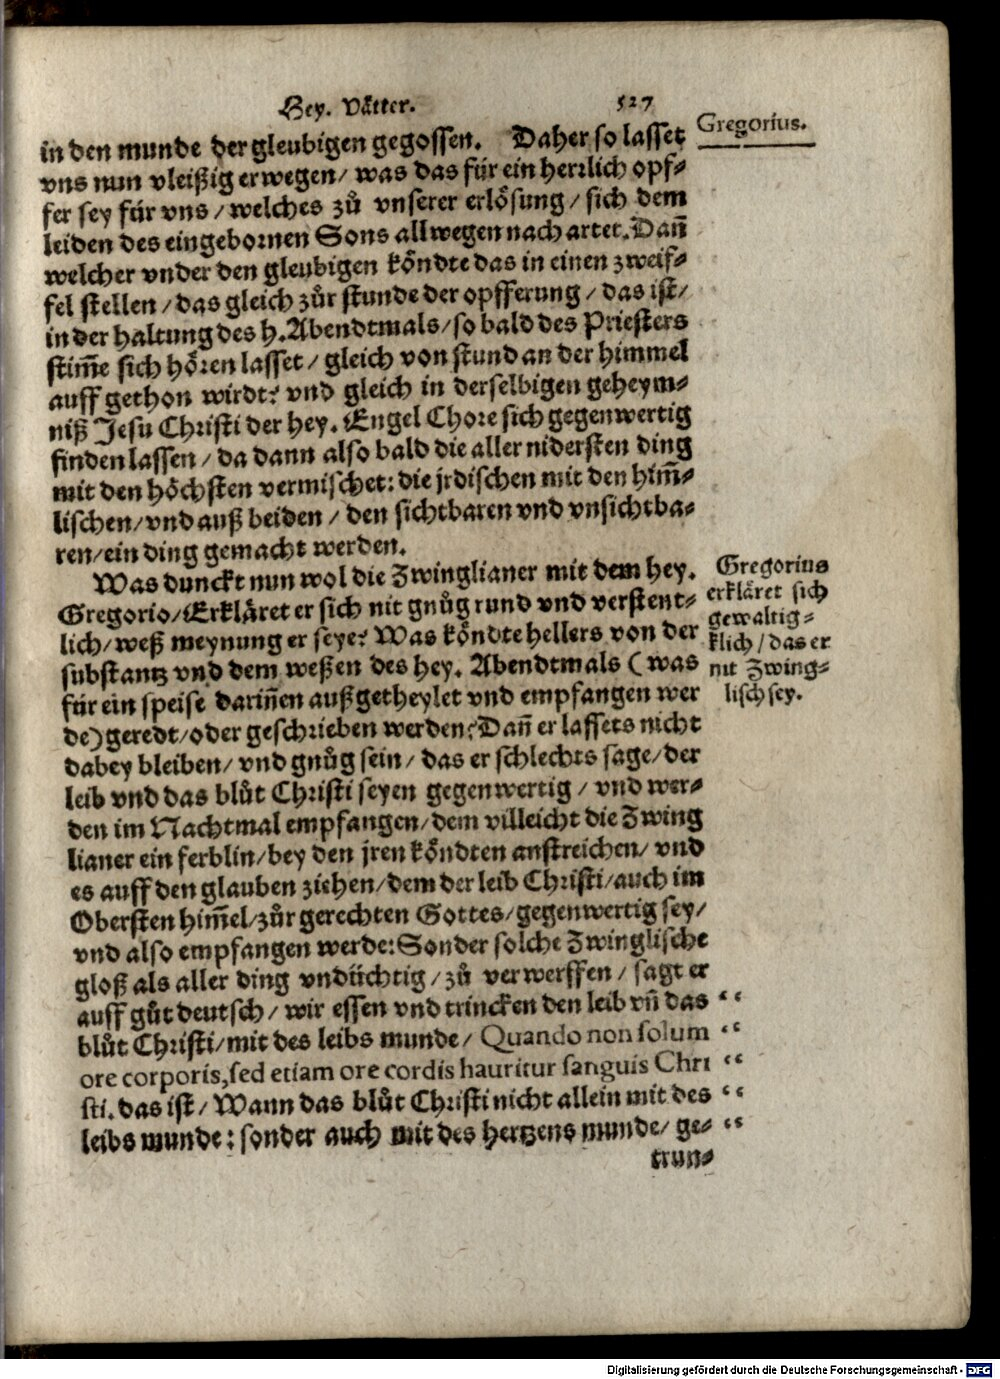 Hey. Vätter.
527
Gregorius.
in den munde der gleubigen gegossen. Daher so lasset
vns nun vleißig erwegen/ was das für ein herrlich opf-
fer sey für vns/ welches zů vnserer erlösung/ sich dem
leiden des eingebornen Sons allwegen nach artet. Dañ
welcher vnder den gleubigen köndte das in einen zweif-
fel stellen/ das gleich zůr stunde der opfferung/ das ist/
in der haltung des h. Abendtmals/ so bald des Priesters
stim̃e sich hören lasset/ gleich von stund an der himmel
auff gethon wirdt? vnd gleich in derselbigen geheym-
niß Jesu Christi der hey. Engel Chore sich gegenwertig
finden lassen/ da dann also bald die aller nidersten ding
mit den höchsten vermischet: die jrdischen mit den him̃-
lischen/ vnd auß beiden/ den sichtbaren vnd vnsichtba-
ren/ ein ding gemacht werden.
Was dunckt nun wol die Zwinglianer mit dem hey.
Gregorio/ Erkläret er sich nit gnůg rund vnd verstent-
lich/ weß meynung er seye? Was köndte hellers von der
substantz vnd dem weßen des hey. Abendtmals (was
für ein speise dariñen außgetheylet vnd empfangen wer
de) geredt/ oder geschrieben werden? Dañ er lassets nicht
dabey bleiben/ vnd gnůg sein/ das er schlechts sage/ der
leib vnd das blůt Christi seyen gegenwertig/ vnd wer-
den im Nachtmal empfangen/ dem villeicht die Zwing
lianer ein ferblin/ bey den jren köndten anstreichen/ vnd
es auff den glauben ziehen/ dem der leib Christi/ auch im
Obersten him̃el/ zůr gerechten Gottes/ gegenwertig sey/
vnd also empfangen werde: Sonder solche Zwinglische
gloß als aller ding vndüchtig/ zů verwerffen/ sagt er
auff gůt deutsch/ wir essen vnd trincken den leib vñ das “
blůt Christi/ mit des leibs munde/ Quando non solum “
ore corporis, sed etiam ore cordis hauritur sanguis Chri “
sti. das ist/ Wann das blůt Christi nicht allein mit des “
leibs munde: sonder auch mit des hertzens munde/ ge- “
trun-
Gregorius
erkläret sich
gewaltig-
klich/ das er
nit Zwing-
lisch sey.
Digitalisierung gefördert durch die Deutsche Forschungsgemeinschaft - DFG